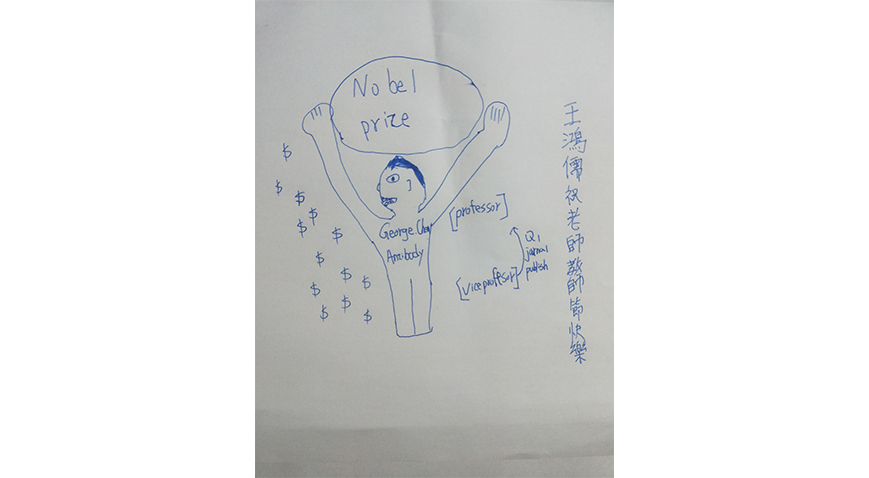 Nobel
prize
George.Chao
Antibody
[professor]
Q1
jarnal
publish
[vice proffsor]
$
$
$
$
$
$
$
$
$
$
$
$
$
王鴻儒祝老師教師節快樂